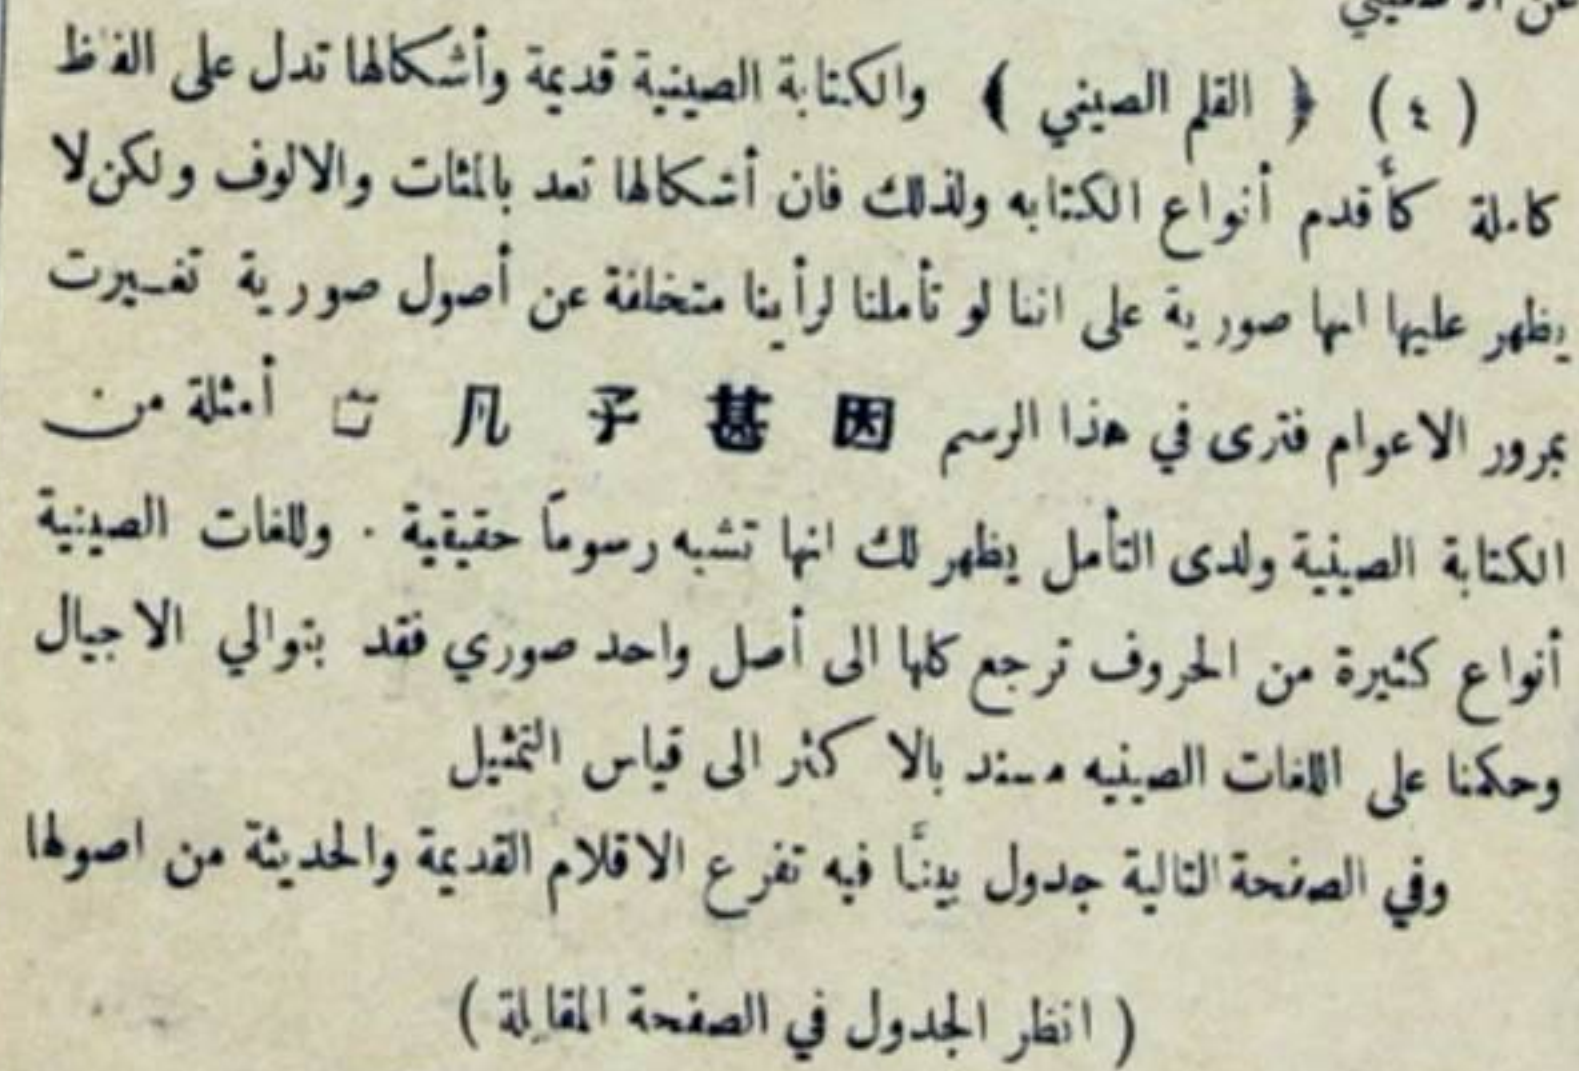 (٤) ﴿ القلم الصيني ﴾ والكتابة الصينية قديمة وأشكالها تدل على الفاظ
كاملة كأقدم أنواع الكتابه ولذلك فان أشكالها تعد بالمئات والالوف ولكن لا
يظهر عليها انها صورية على اننا لو تأملنا لرأينا متخلفة عن أصول صورية تغيرت
بمرور الاعوام فترى في هذا الرسم 因 甚 子 凡 أمثلة من
الكتابة الصينية ولدى التأمل يظهر لك انها تشبه رسوماً حقيقية . وللغات الصينية
أنواع كثيرة من الحروف ترجع كلها الى أصل واحد صوري فقد بتوالي الاجيال
وحكمنا على اللغات الصينيه مسند بالاكثر الى قياس التمثيل
وفي الصفحة التالية جدول بينَّا فيه تفرع الاقلام القديمة والحديثة من اصولها
( انظر الجدول في الصفحة المقابلة )